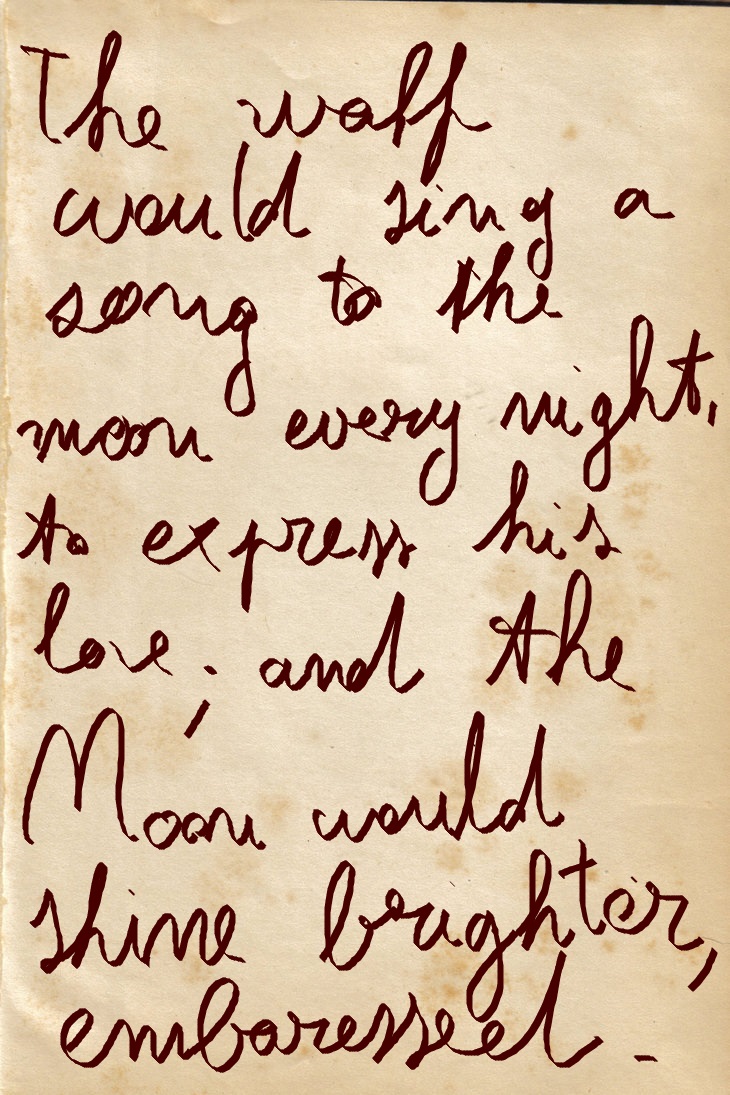 The wolf
would sing a
song to the
moon every night,
to express his
love; and the
Moon would
shine brighter,
embaressed.